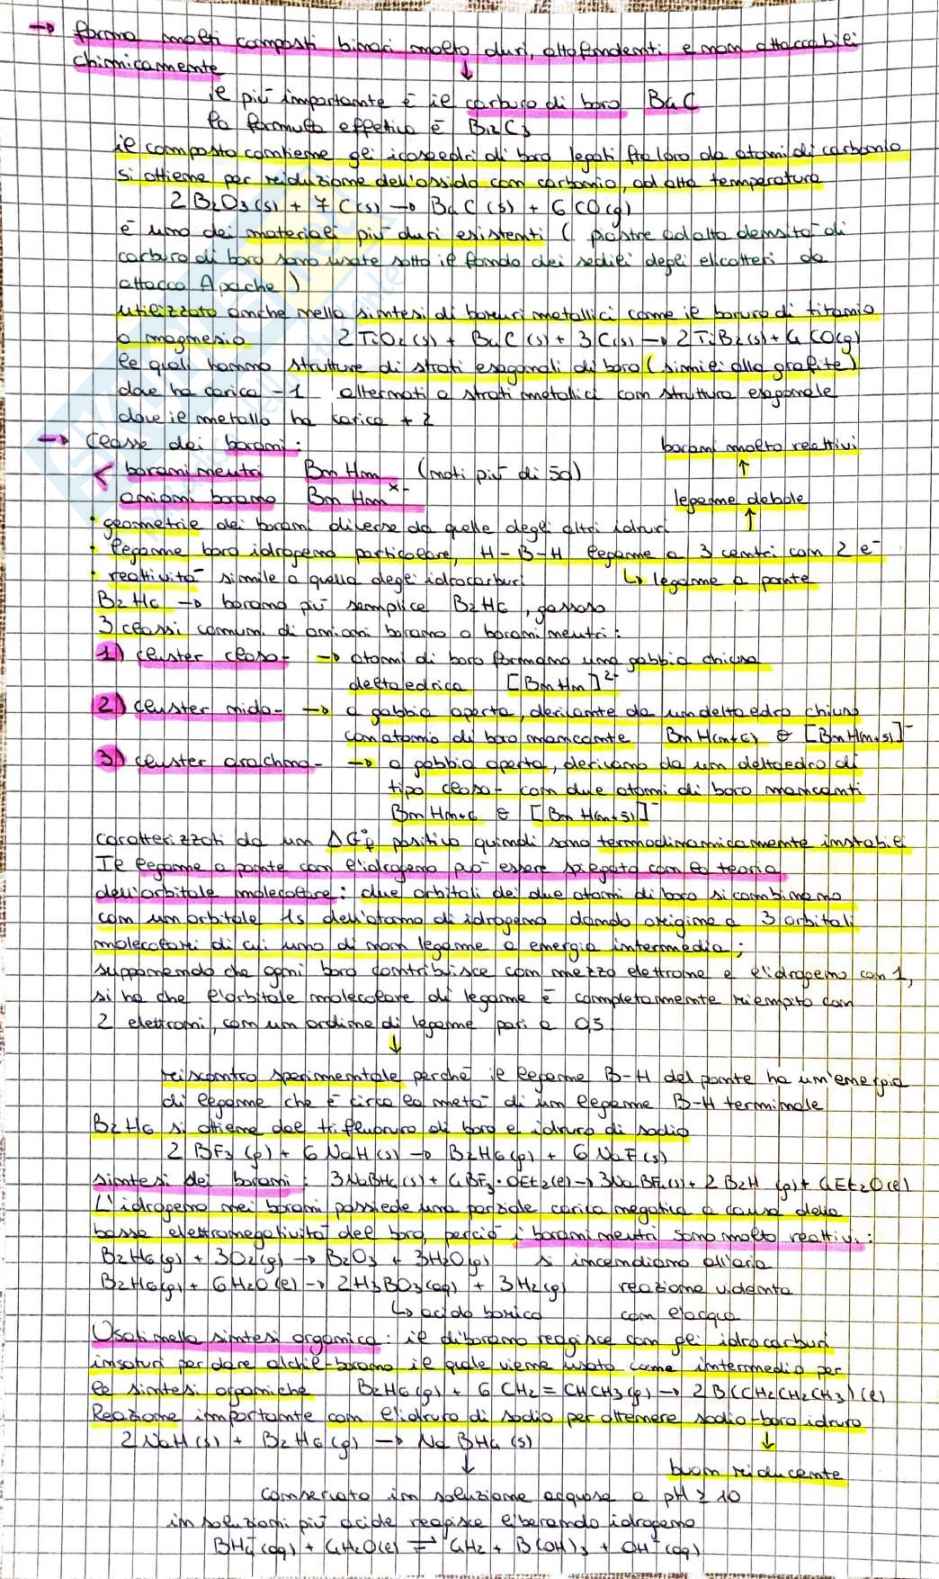 → forma molti composti binari molto duri, altofondenti e non attaccabili
chimicamente ↓
il più importante è il carburo di boro B4C
la formula effettiva è B12C3
il composto contiene gli icosaedri di boro legati fra loro da atomi di carbonio
si ottiene per riduzione dell'ossido con carbonio, ad alta temperatura
2 B2O3(s) + 7 C(s) → B4C(s) + 6 CO(g)
è uno dei materiali più duri esistenti ( piastre ad alta densità di
carburo di boro sono usate sotto il fondo dei sedili degli elicotteri da
attacco Apache )
utilizzato anche nella sintesi di boruri metallici come il boruro di titanio
o magnesio 2TiO2(s) + B4C(s) + 3C(s) → 2TiB2(s) + 4CO(g)
le quali hanno strutture di strati esagonali di boro (simili alla grafite)
dove ha carica -1 alternati a strati metallici con struttura esagonale
dove il metallo ha carica +2
→ Classe dei borani: borani molto reattivi
< borani neutri BmHm (noti più di 50) ↑
anioni borano BmHm^x- legame debole
• geometrie dei borani diverse da quelle degli altri idruri ↑
• legame boro idrogeno particolare, H-B-H legame a 3 centri con 2 e-
• reattività simile a quella degli idrocarburi ↳ legame a ponte
B2H6 → borano più semplice B2H6, gassoso
3 classi comuni di anioni borano o borani neutri:
1) cluster closo- → atomi di boro formano una gabbia chiusa
deltaedrica [BmHm]^2-
2) cluster nido- → a gabbia aperta, derivante da un deltaedro chiuso
con atomio di boro mancante BmH(m+4) e [BmH(m+5)]^-
3) cluster arachno- → a gabbia aperta, derivano da un deltaedro di
tipo closo- con due atomi di boro mancanti
BmHm+6 e [BmH(m+5)]^-
caratterizzati da un ΔG°f positivo quindi sono termodinamicamente instabili
Il legame a ponte con l'idrogeno può essere spiegato con la teoria
dell'orbitale molecolare: due orbitali dei due atomi di boro si combinano
con un orbitale 1s dell'atomo di idrogeno dando origine a 3 orbitali
molecolari di cui uno di non legame a energia intermedia;
supponendo che ogni boro contribuisce con mezzo elettrone e l'idrogeno con 1,
si ha che l'orbitale molecolare di legame è completamente riempito con
2 elettroni, con un ordine di legame pari a 0,5
↓
riscontro sperimentale perché il legame B-H del ponte ha un'energia
di legame che è circa la metà di un legame B-H terminale
B2H6 si ottiene dal trifluoruro di boro e idruro di sodio
2 BF3(g) + 6 NaH(s) → B2H6(g) + 6 NaF(s)
sintesi dei borani: 3NaBH4(s) + 4BF3·OEt2(l) → 3NaBF4(s) + 2 B2H (g) + 4Et2O(l)
L'idrogeno nei borani possiede una parziale carica negativa a causa della
bassa elettronegatività del boro, perciò i borani neutri sono molto reattivi:
B2H6(g) + 3O2(g) → B2O3 + 3H2O(g) si incendiano all'aria
B2H6(g) + 6H2O(l) → 2H3BO3(aq) + 3H2(g) reazione violenta
↳ acido borico con l'acqua
Usati nella sintesi organica: il diborano reagisce con gli idrocarburi
insaturi per dare alchil-borano il quale viene usato come intermedio per
le sintesi organiche B2H6(g) + 6 CH2=CHCH3(g) → 2B(CH2CH2CH3)(l)
Reazione importante con l'idruro di sodio per ottenere sodio-boro idruro
2 NaH(s) + B2H6(g) → NaBH4(s) ↓
↓ buon riducente
conservato in soluzione acquosa a pH ≥ 10
in soluzioni più acide reagisce liberando idrogeno
BH4^-(aq) + 4H2O(l) ⇌ 4H2 + B(OH)3 + OH^-(aq)